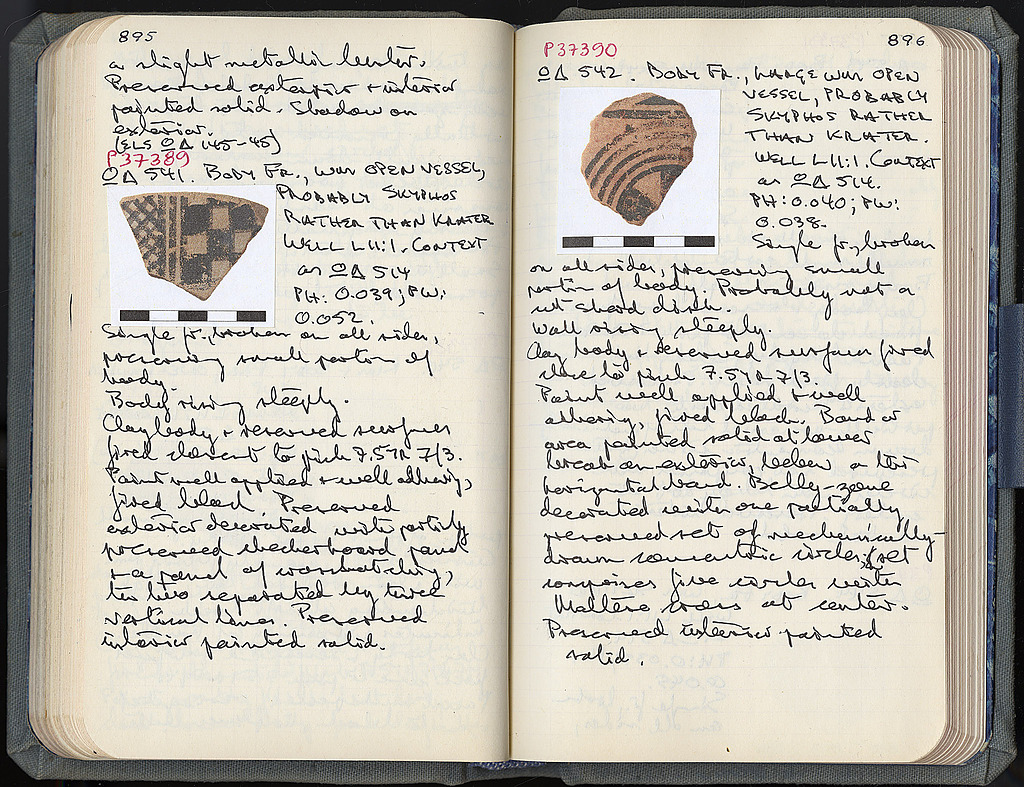 895
a slight metallic luster.
Preserved exterior + interior
painted solid. Shadow on
exterior.
(ELS ΟΔ 145-45)
P37389
ΟΔ 541. BODY FR., WM OPEN VESSEL,
PROBABLY SKYPHOS
RATHER THAN KRATER
WELL L 11:1. CONTEXT
as ΟΔ 514
PH: 0.039; PW:
0.052.
Single fr., broken on all sides,
preserving small portion of
body.
Body rising steeply.
Clay body + reserved surfaces
fired closest to pink 7.5YR 7/3.
Paint well applied + well adhering,
fired black. Preserved
exterior decorated with partially
preserved checkerboard panel
+ a panel of crosshatching,
the two separated by three
vertical lines. Preserved
interior painted solid.
896
P37390
ΟΔ 542. BODY FR., LARGE WM OPEN
VESSEL, PROBABLY
SKYPHOS RATHER
THAN KRATER.
WELL L 11:1. CONTEXT
as ΟΔ 514.
PH: 0.040; PW:
0.038.
Single fr., broken
on all sides, preserving small
portion of body. Probably not a
cut sherd disk.
Wall rising steeply.
Clay body + reserved surfaces fired
close to pink 7.5YR 7/3.
Paint well applied + well
adhering, fired black. Band or
area painted solid at lower
break on exterior, below a thin
horizontal band. Belly-zone
decorated with one partially
preserved set of mechanically-
drawn concentric circles; set
comprises five circles with
Maltese cross at center.
Preserved interior painted
solid.